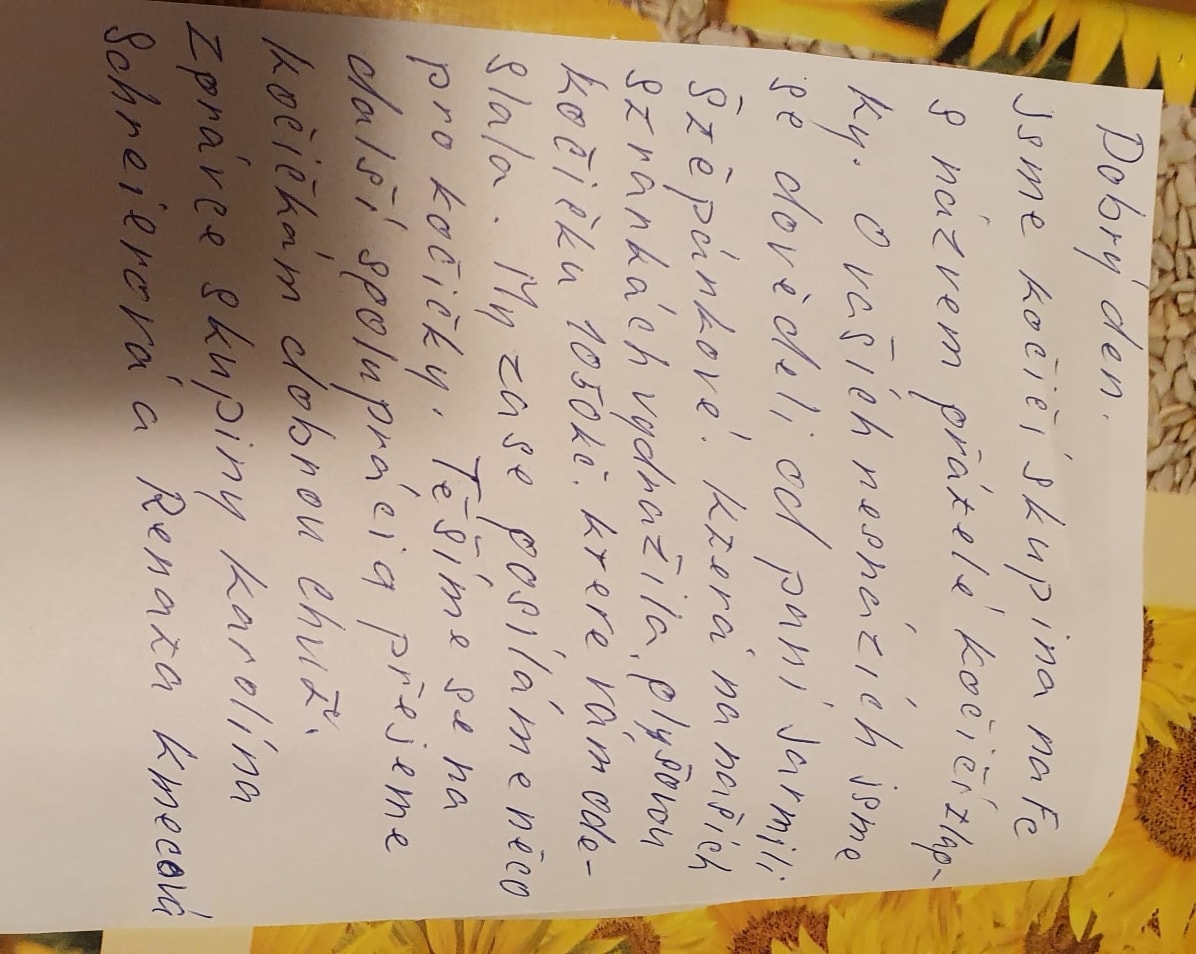 Dobrý den.
Jsme kočičí skupina na Fc
s názvem přátelé kočičí tlap-
ky. O vašich nesnázích jsme
se dověděli od paní Jarmili
Štěpánkové. která na našich
stránkách vydražila plyšovou
kočičku 1050kč. ktere vám ode-
slala. My zase posíláme něco
pro kočičky. Těšíme se na
další spolupráci a přejeme
kočičkám dobrou chuť.
Zpráv­ce skupiny karolína
Schreierová a Renata kmecová